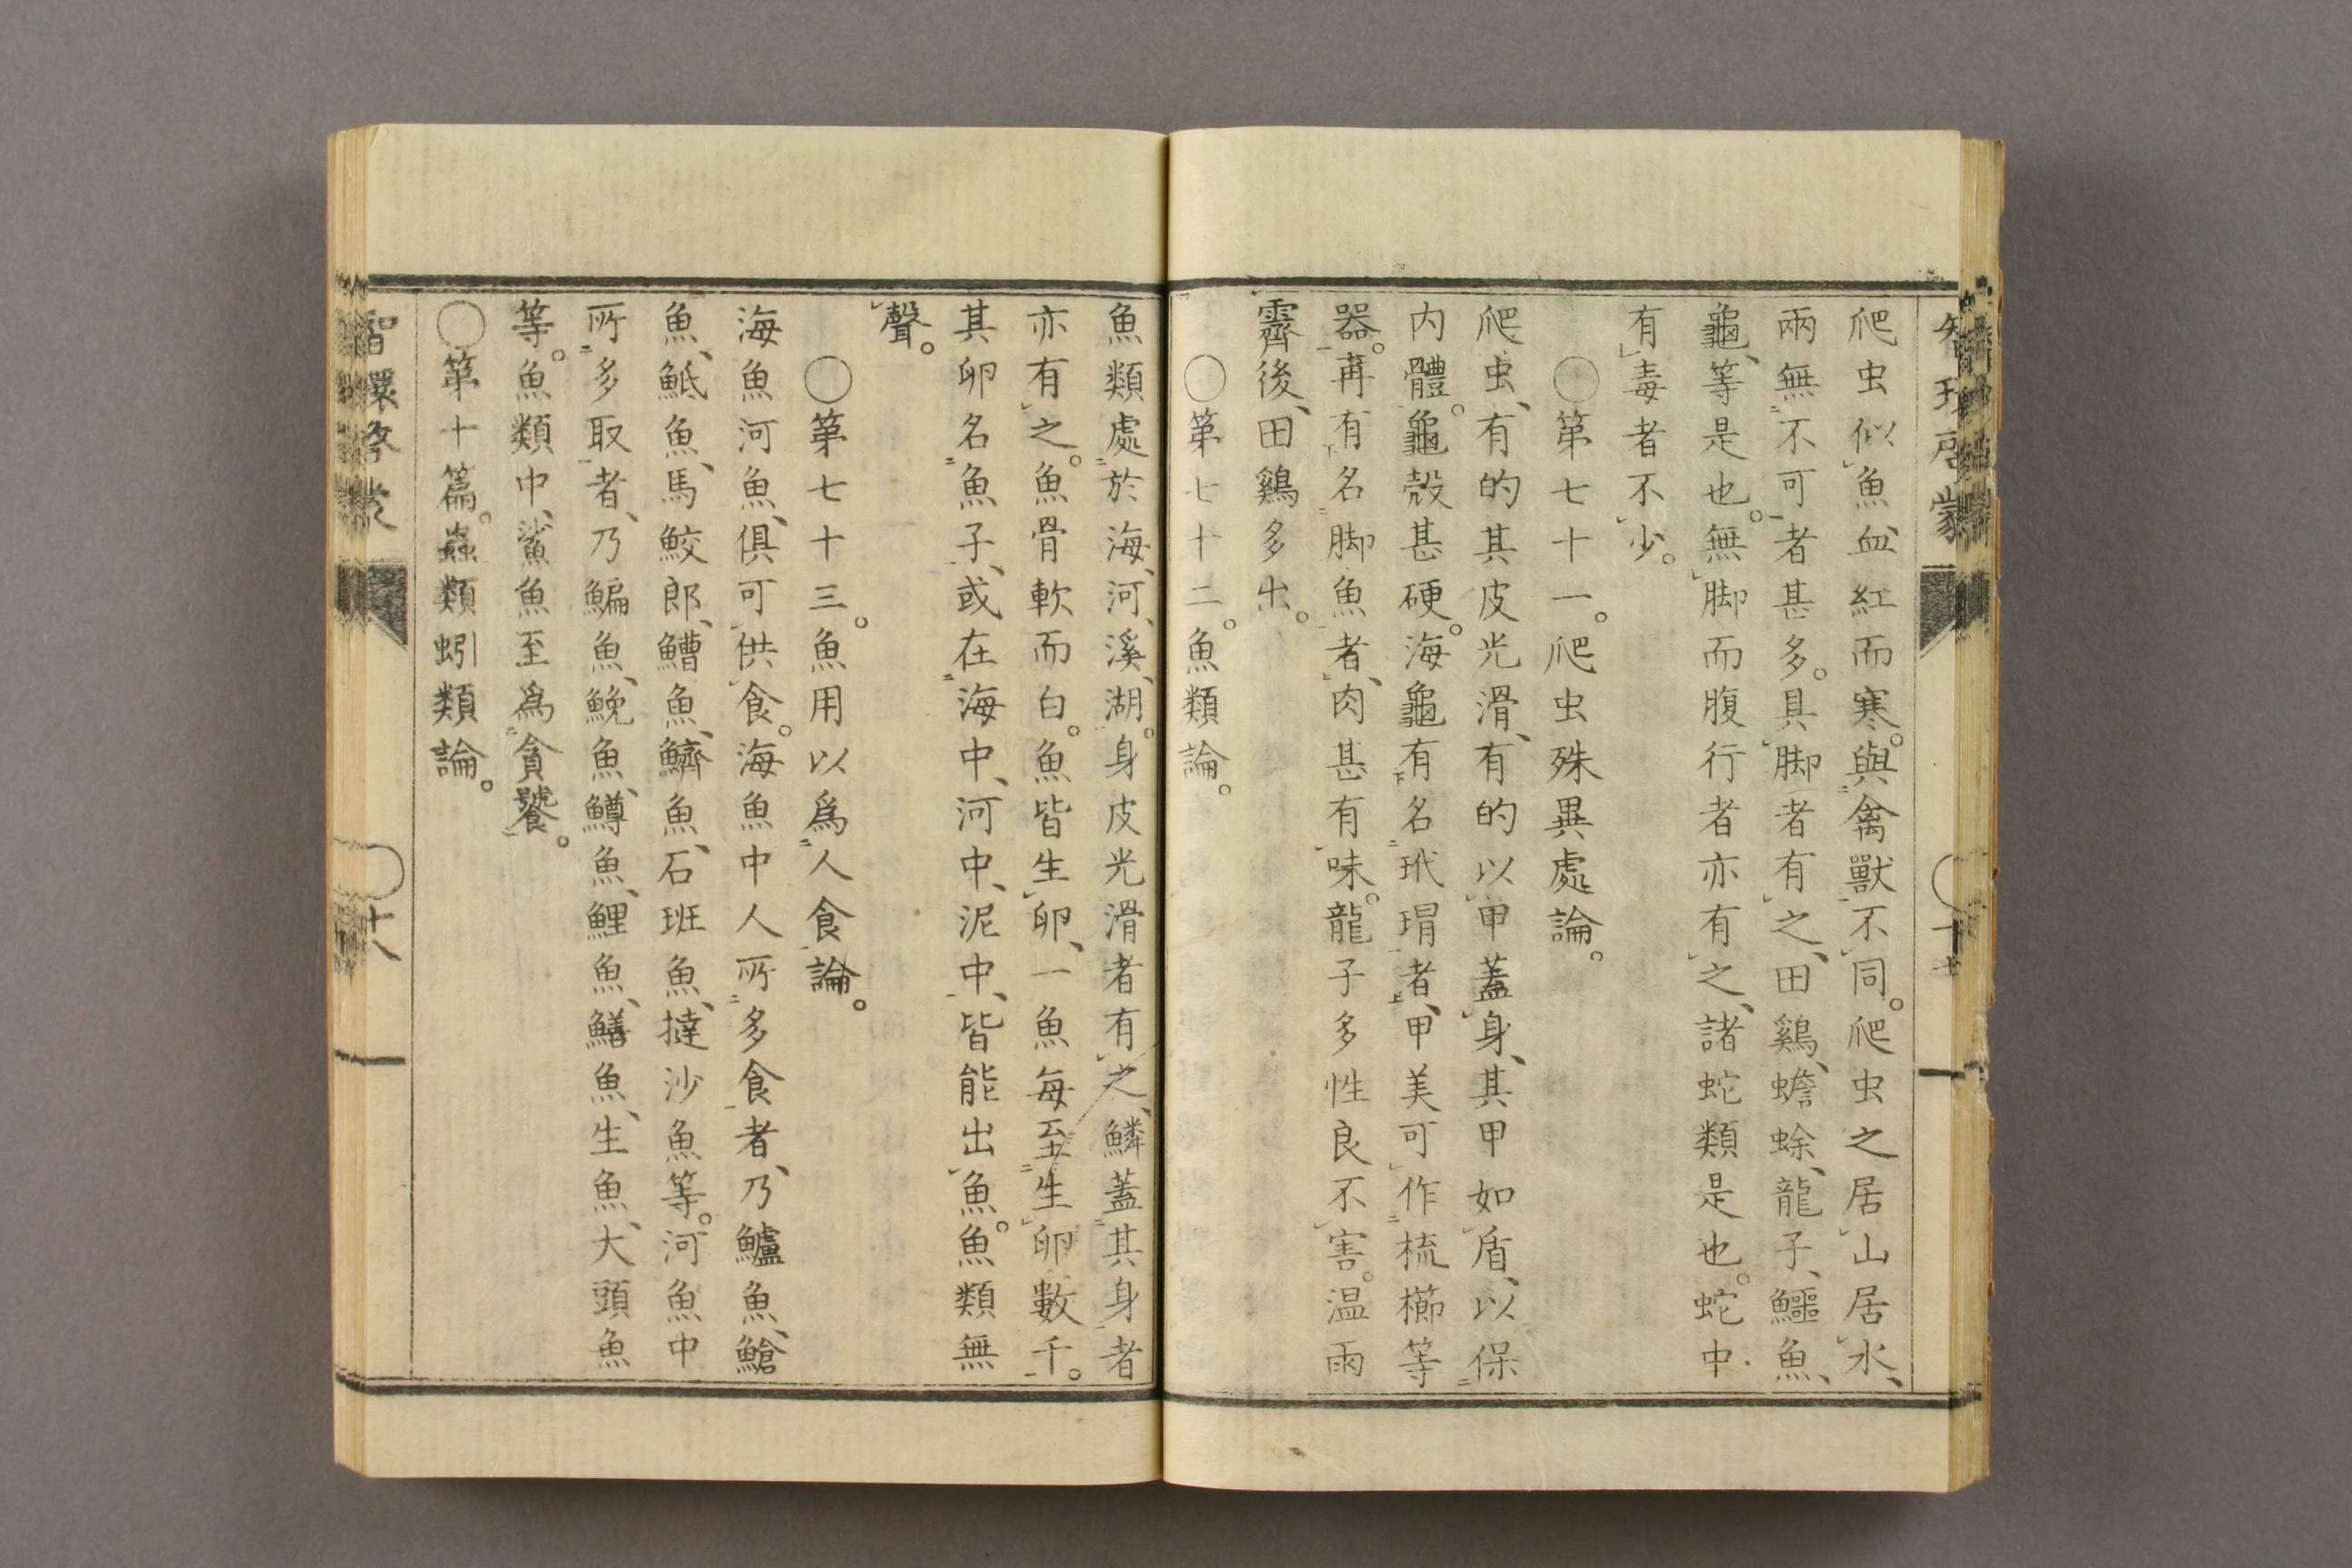 智環啓蒙
十七
爬虫似魚、血紅而寒。與禽獸不同。爬虫之居山居水、
兩無不可者甚多。具脚者有之、田鷄、蟾蜍、龍子、鱷魚、
龜、等是也。無脚而腹行者亦有之、諸蛇類是也。蛇中
有毒者不少。
〇第七十一。爬虫殊異處論。
爬虫、有的其皮光滑、有的以甲蓋身、其甲如盾、以保
内體。龜殼甚硬。海龜有名玳瑁者、甲美可作梳櫛等
器。苒有名脚魚者、肉甚有味。龍子多性良不害。温雨
霽後、田鷄多出。
〇第七十二。魚類論。
魚類處於海、河、溪、湖。身皮光滑者有之、鱗蓋其身者
亦有之。魚骨軟而白。魚皆生卵、一魚每至生卵數千。
其卵名魚子、或在海中、河中、泥中、皆能出魚。魚類無
聲。
〇第七十三。魚用以爲人食論。
海魚河魚、俱可供食。海魚中人所多食者、乃鱸魚、鯧
魚、魠魚、馬鮫郎、鰽魚、鱭魚、石班魚、撻沙魚等。河魚中
所多取者、乃鯿魚、鮸魚、鱒魚、鯉魚、鱔魚、生魚、大頭魚
等。魚類中、鯊魚至爲貪饕。
〇第十篇。蟲類蚓類論。
智環啓蒙
十八